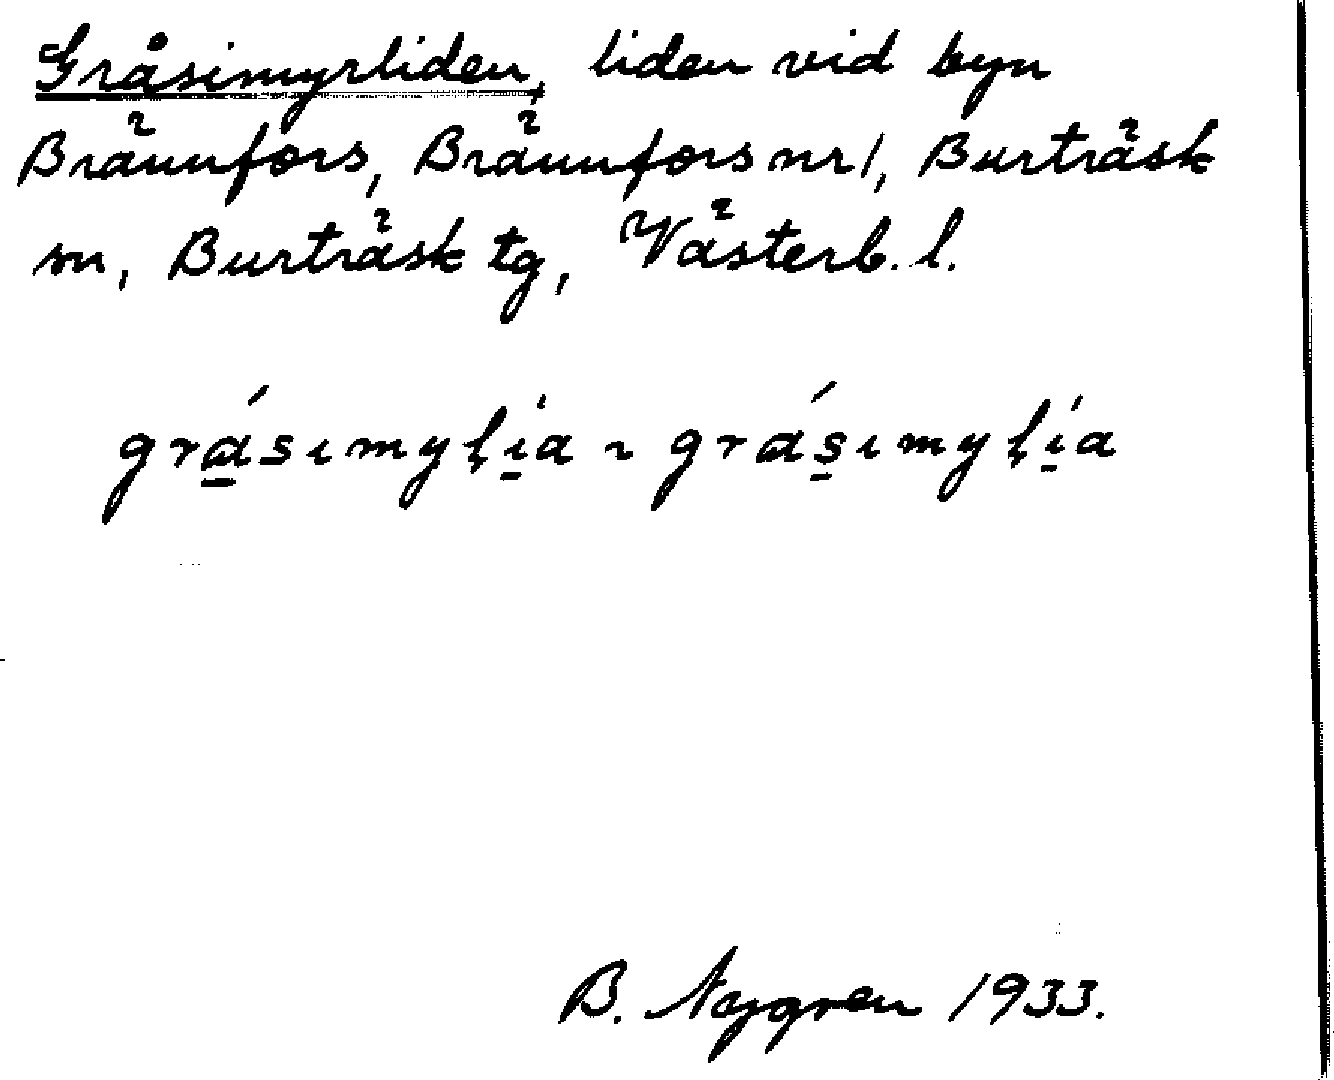 Gråsimyrliden, liden vid byn
Brännfors, Brännfors nr 1, Burträsk
sn, Burträsk tg, Västerb. l.
grásımyl̨i̠a ~ grás̠ımyl̨i̠a
B. Nygren 1933.